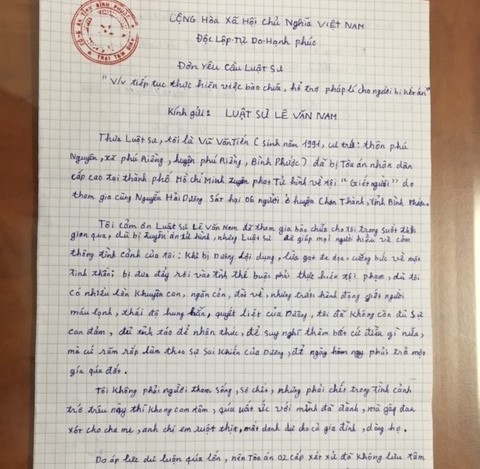 CỘNG HÒA XÃ HỘI CHỦ NGHĨA VIỆT NAM
Độc Lập-Tự Do-Hạnh phúc
Đơn Yêu Cầu Luật Sư
"V/v tiếp tục thực hiện việc bào chữa, hỗ trợ pháp lí cho người bị kết án"
Kính gửi: LUẬT SƯ LÊ VĂN NAM
Thưa Luật sư, tôi là Vũ Văn Tiến (sinh năm 1991, cư trú: thôn phú
Nguyên, xã phú Riềng, huyện phú Riềng, Bình Phước) đã bị Tòa án nhân dân
cấp cao tại thành phố Hồ Chí Minh tuyên phạt Tử hình về tội "Giết người" do
tham gia cùng Nguyễn Hải Dương sát hại 06 người ở huyện Chơn Thành, tỉnh Bình Phước.
Tôi cảm ơn Luật sư Lê Văn Nam đã tham gia bào chữa cho tôi trong suốt thời
gian qua, dù bị tuyên án tử hình, nhưng Luật sư đã giúp mọi người hiểu và cảm
thông tình cảnh của tôi: Khi bị Dương lợi dụng, lừa gạt đe dọa, cưỡng bức về mặt
tinh thần; bị đưa đẩy rơi vào tình thế buộc phải thực hiện tội phạm, dù tôi
có nhiều lần khuyên can, ngăn cản, đòi về, nhưng trước hành động giết người
máu lạnh, thái độ hung hãn, quyết liệt của Dương, tôi đã không còn đủ sự
can đảm, đủ tỉnh táo để nhận thức, để suy nghĩ thêm bất cứ điều gì nữa,
mà cứ răm rắp làm theo sự sai khiến của Dương, để ngày hôm nay phải trả một
giá quá đắt.
Tôi không phải người tham sống, sợ chết, nhưng phải chết trong tình cảnh
trớ trêu này thì không cam tâm, quá uất ức với mình đã đành, mà gây đau
xót cho cha mẹ, anh chị em ruột thịt, mất danh dự cho cả gia đình, dòng họ.
Do áp lực dư luận quá lớn, nên Tòa án 02 cấp xét xử đã không lưu tâm